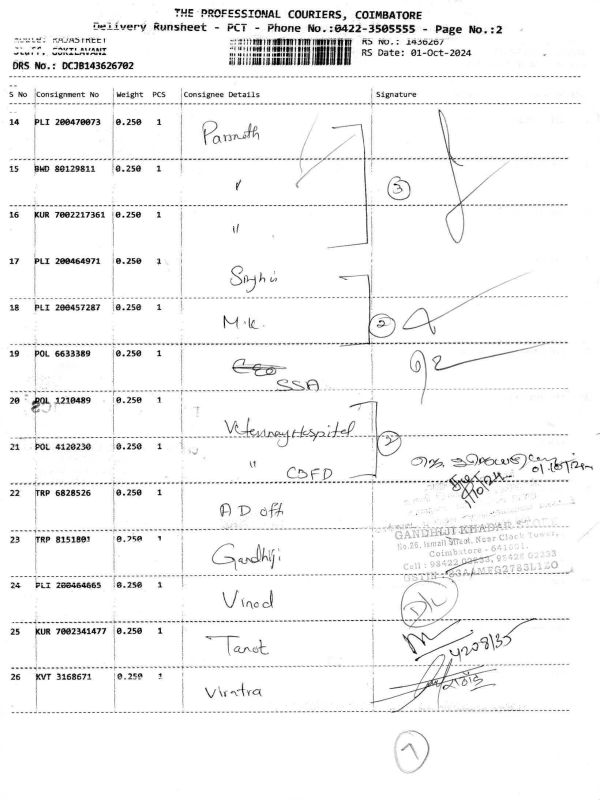 THE PROFESSIONAL COURIERS, COIMBATORE
Delivery Runsheet - PCT - Phone No.:0422-3505555 - Page No.:2
Route: RAJASTREET
RS No.: 1436267
Staff: GOKILAVANI
RS Date: 01-Oct-2024
DRS No.: DCJB143626702
S No Consignment No Weight PCS Consignee Details Signature
14 PLI 200470073 0.250 1
15 BWD 80129811 0.250 1 "
3
16 KUR 7002217361 0.250 1 "
17 PLI 200464971 0.250 1
18 PLI 200457287 0.250 1 M.K. 2
19 POL 6633389 0.250 1
SSA
20 POL 1210489 0.250 1
Veterinary Hospital 2
21 POL 4120230 0.250 1 " CBFD
22 TRP 6828526 0.250 1 A D off
GANDHIJI KHADAR STORE
23 TRP 8151801 0.250 1 No.26, Ismail Street, Near Clock Tower,
Gandhiji Coimbatore - 641001.
Cell : 98422 02233, 98428 02233
24 PLI 200464665 0.250 1
Vinod D/L
25 KUR 7002341477 0.250 1
Tanot
26 KVT 3168671 0.250 1
7